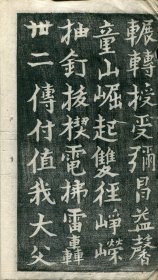 輾轉授受彌昌益馨
童山崛起雙徑崢嶸
抽釘拔楔電拂雷轟
卅二傳付值我大父